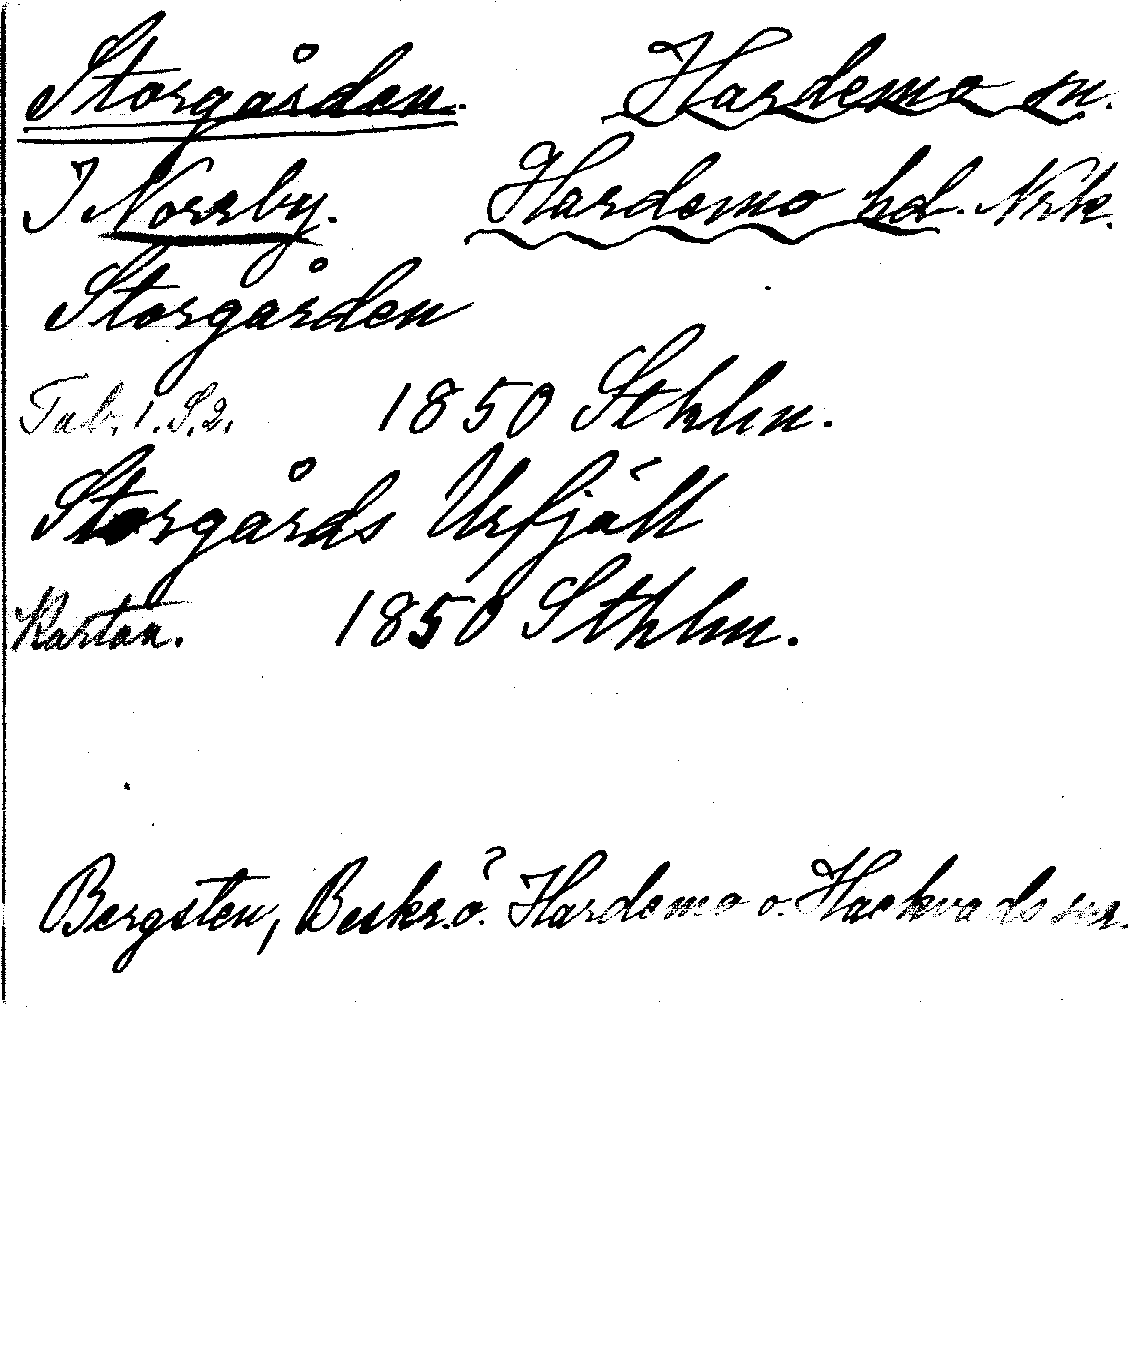 Storgården. Hardemo sn.
I Norrby. Hardemo hd. Nrk.
Storgården
Tab. 1. S. 2. 1850 Sthlm.
Storgårds Urfjäll
Kartan. 1850 Sthlm.
Bergsten, Beskr. ö. Hardemo o. Hackvads snr.